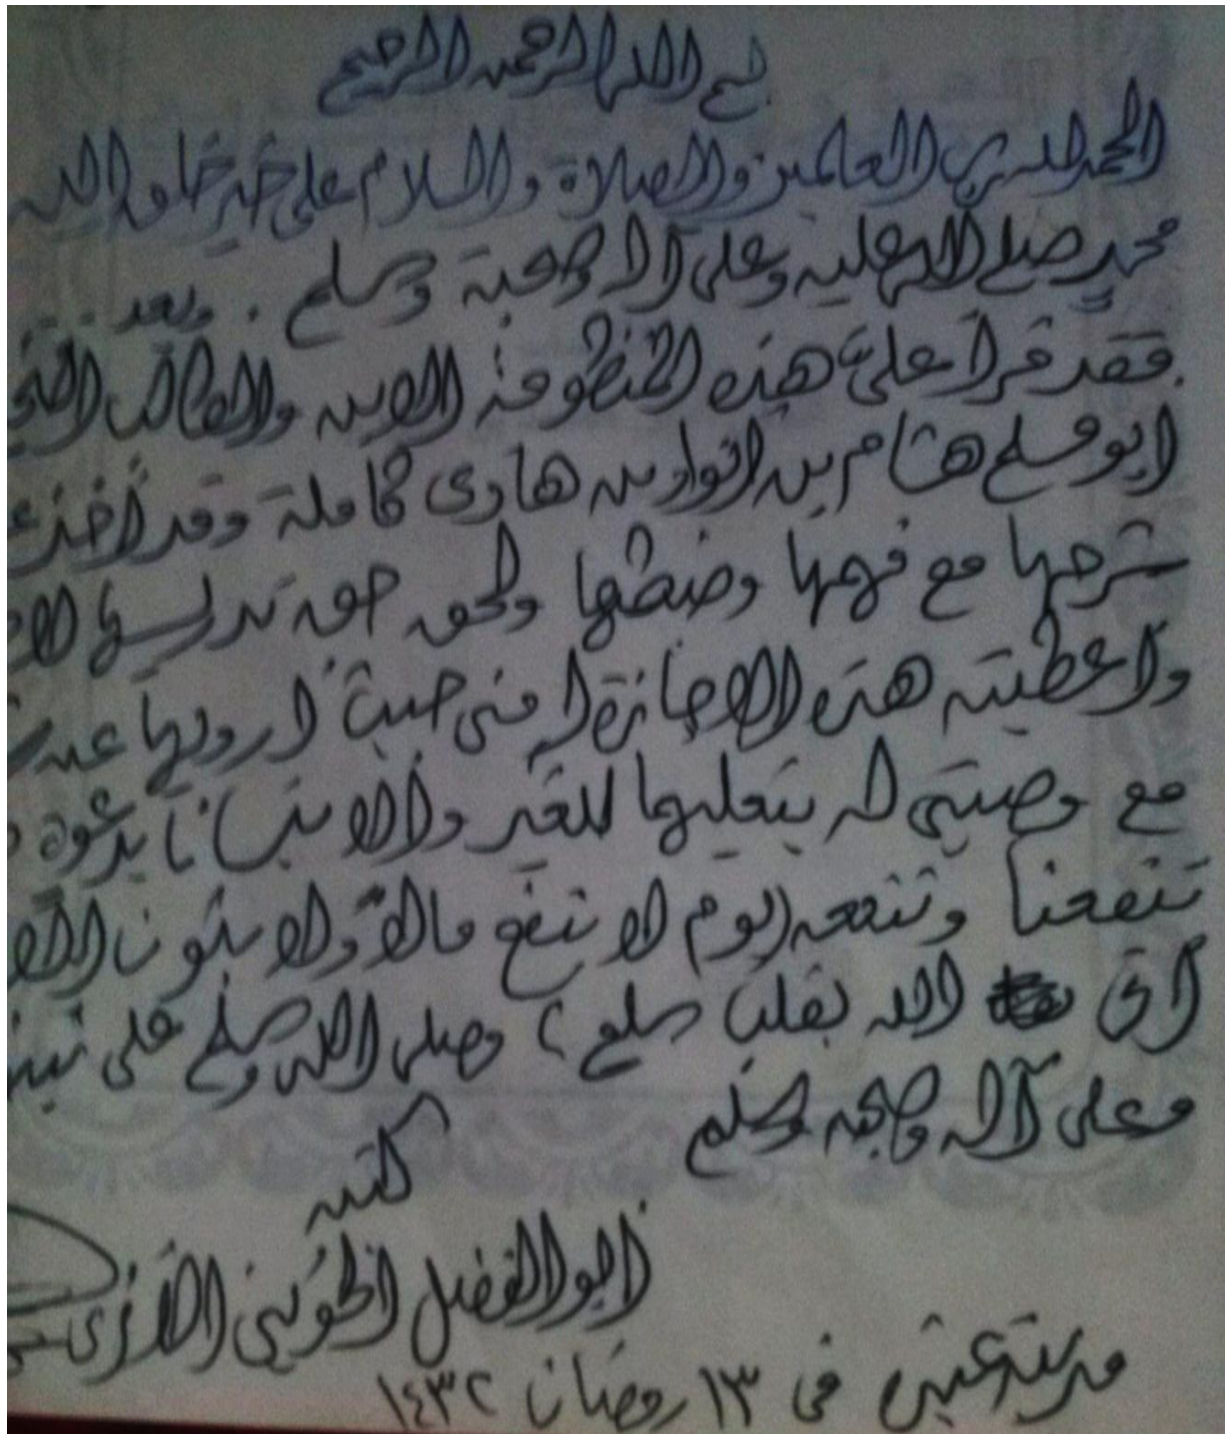 بسم الله الرحمن الرحيم
الحمد لله رب العالمين والصلاة والسلام على خير خلق الله
محمد صلى الله عليه وعلى آله وصحبه وسلم . وبعد ..
فقد قرأ علىّ هذه المنظومة الابن والطالب
أبو مسلم هشام بن انوار بن هادى كاملة وقد أخذ
شرحها مع فهمها وضبطها ولحق حق تدريسها
وأعطيته هذه الاجازة منى حيث أرويها عن
مع وصيتى له بتعليمها للغير وألا ينسانا بدعوة
تنفعنا وتنفعه (يوم لا ينفع مال ولا بنون إلا
أتى الله بقلب سليم) وصلى الله وسلم على
وعلى آله وصحبه وسلم
كتبه
أبو الفضل
مدينة فى ١٣ رمضان ١٤٣٢